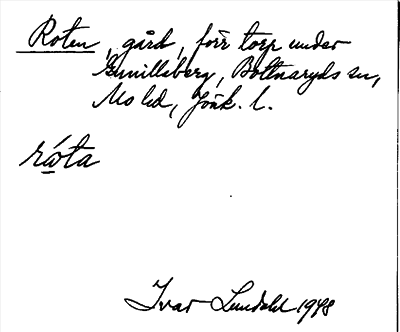 Roten, gård, förr torp under
Gunillaberg, Bottnaryds sn,
Mo hd, Jönk. l.
råta
Ivar Lundahl 1948